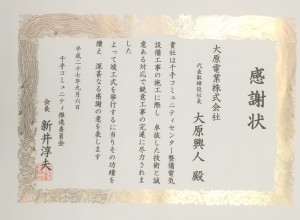 感謝状
大原電業株式会社
代表取締役社長
大原興人 殿
貴社は千手コミュニティセンター整備電気
設備工事の施工に際し 卓越した技術と誠
意ある対応で観光工事の完遂に尽力されま
した
よって竣工式を挙行するに当りその功績を
讃え 深甚なる感謝の意を表します
平成二十七年九月六日
千手コミュニティ推進委員会
会長 新井淳夫